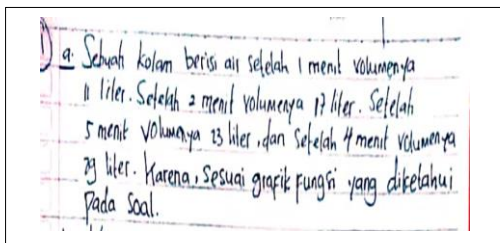 1) a. Sebuah kolam berisi air setelah 1 menit volumenya
11 liter. Setelah 2 menit volumenya 17 liter. Setelah
5 menit volumenya 23 liter, dan setelah 4 menit volumenya
29 liter. Karena, sesuai grafik fungsi yang diketahui
pada soal.